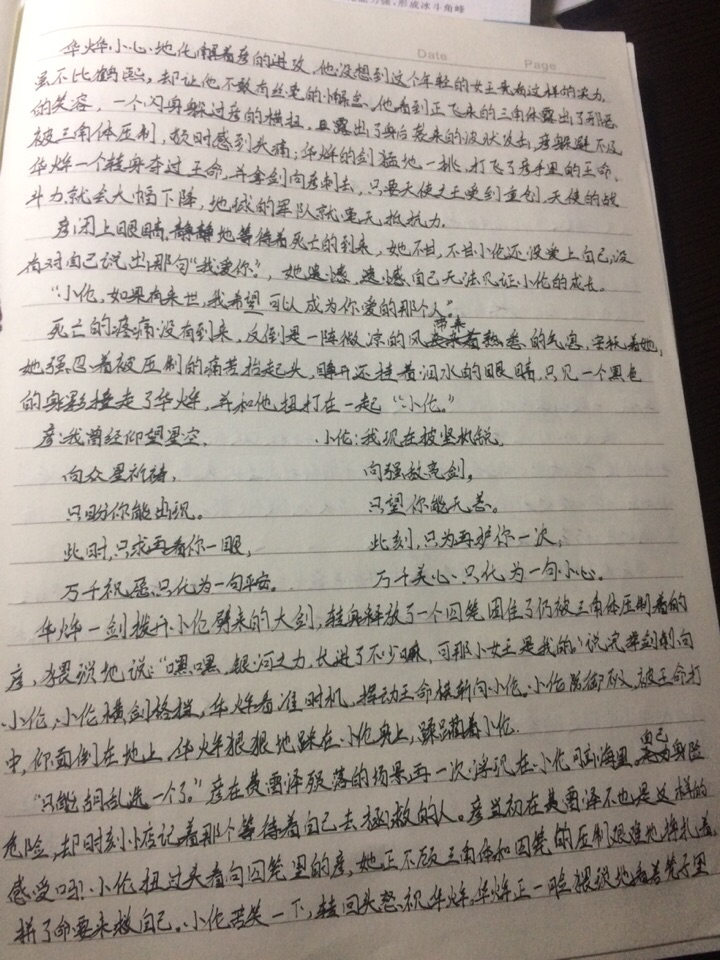 形成冰斗角峰
Date Page
华烨小心地化解着彦的进攻,他没想到这个年轻的女王竟有这样的实力,
虽不比鹤熙,却让他不敢有丝毫的懈怠。他看到正飞来的三角体露出了邪恶
的笑容,一个闪身躲过彦的横扫,且露出了身后袭来的波状攻击,彦躲避不及
被三角体压制,顿时感到头痛;华烨的剑猛地一挑,打飞了彦手里的王命,
华烨一个转身夺过王命,并拿剑向彦刺去,只要天使之王受到重创,天使的战
斗力就会大幅下降,地球的军队就毫无抵抗力。
彦闭上眼睛,静静地等待着死亡的到来,她不甘,不甘小伦还没爱上自己,没
有对自己说出那句“我爱你”,她遗憾,遗憾自己无法见证小伦的成长。
“小伦,如果有来世,我希望可以成为你爱的那个人。”
死亡的疼痛没有到来,反倒是一阵微凉的风带来熟悉的气息,安抚着她,
她强忍着被压制的痛苦抬起头,睁开还挂着泪水的眼睛,只见一个黑色
的身影撞走了华烨,并和他扭打在一起“小伦。”
彦:我曾经仰望星空, 小伦:我现在披坚执锐,
向众星祈祷, 向强敌亮剑,
只盼你能出现。 只望你能无恙。
此时,只求再看你一眼, 此刻,只为再护你一次,
万千祝愿只化为一句平安。 万千关心只化为一句小心。
华烨一剑拨开小伦劈来的大剑,转身释放了一个囚笼困住了仍被三角体压制着的
彦,猥琐地说:“嘿嘿,银河之力,长进了不少嘛,可那小女王是我的”说完举剑刺向
小伦,小伦横剑格挡,华烨看准时机,挥动王命横斩向小伦。小伦防御不及,被王命打
中,仰面倒在地上,华烨狠狠地踩在小伦身上,蹂躏着小伦。
“只能胡乱选一个了。”彦在费雷泽陨落的场景再一次浮现在小伦脑海里,自己身陷
危险,却时刻惦记着那个等待着自己去拯救的人。彦当初在费雷泽不也是这样的
感受吗!小伦扭过头看向囚笼里的彦,她正不顾三角体和囚笼的压制艰难地挣扎着,
拼了命要来救自己。小伦苦笑一下,转回头怒视华烨,华烨正一脸猥琐地看着笼子里